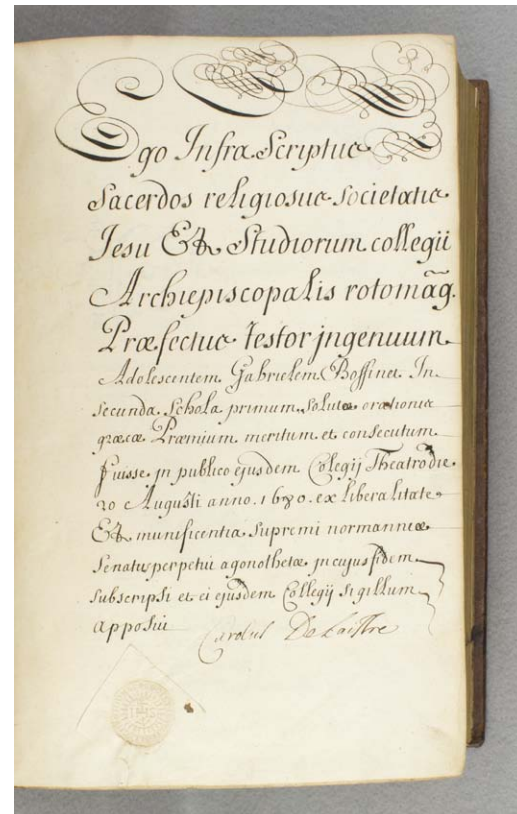 Ego Infra Scriptus
Sacerdos religiosus Societatis
Jesu Et Studiorum collegii
Archiepiscopalis rotomag.
Præfectus testor jngenuum
Adolescentem Gabrielem Boffinet In
secunda Schola primum Solutæ orationis
græcæ Præmium meritum et consecutum
fuisse jn publico ejusdem Colegij Theatro die
20 Augusti anno 1680 ex liberalitate
Et munificentia Supremi normanniæ
Senatus perpetui agonothetæ jn cujus fidem
subscripsi et ei ejusdem Collegij sigillum
apposui
Carolus De Laistre